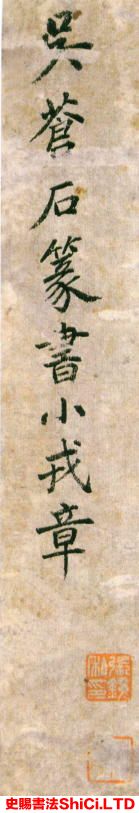 吳蒼石篆書小戎章
史賜書法ShiCi.LTD